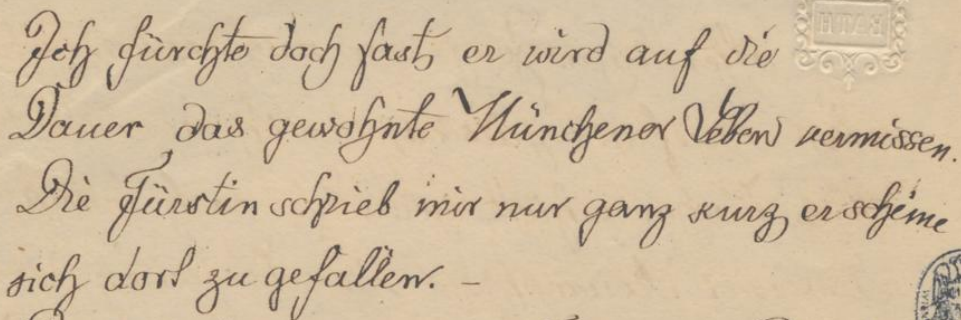 Ich fürchte doch fast, er wird auf die
Dauer das gewohnte Münchener Leben vermissen.
Die Fürstin schrieb mir nur ganz kurz, er scheine
sich dort zu gefallen. –
BATH